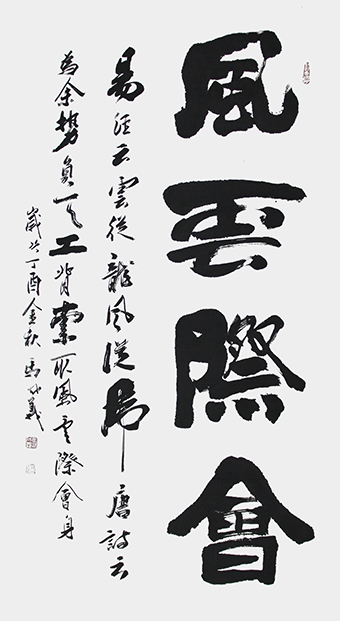 風雲際會
易經云雲從龍風從虎唐詩云
為余勢負天工背索取風雲際會身
歲丁酉金秋馬義